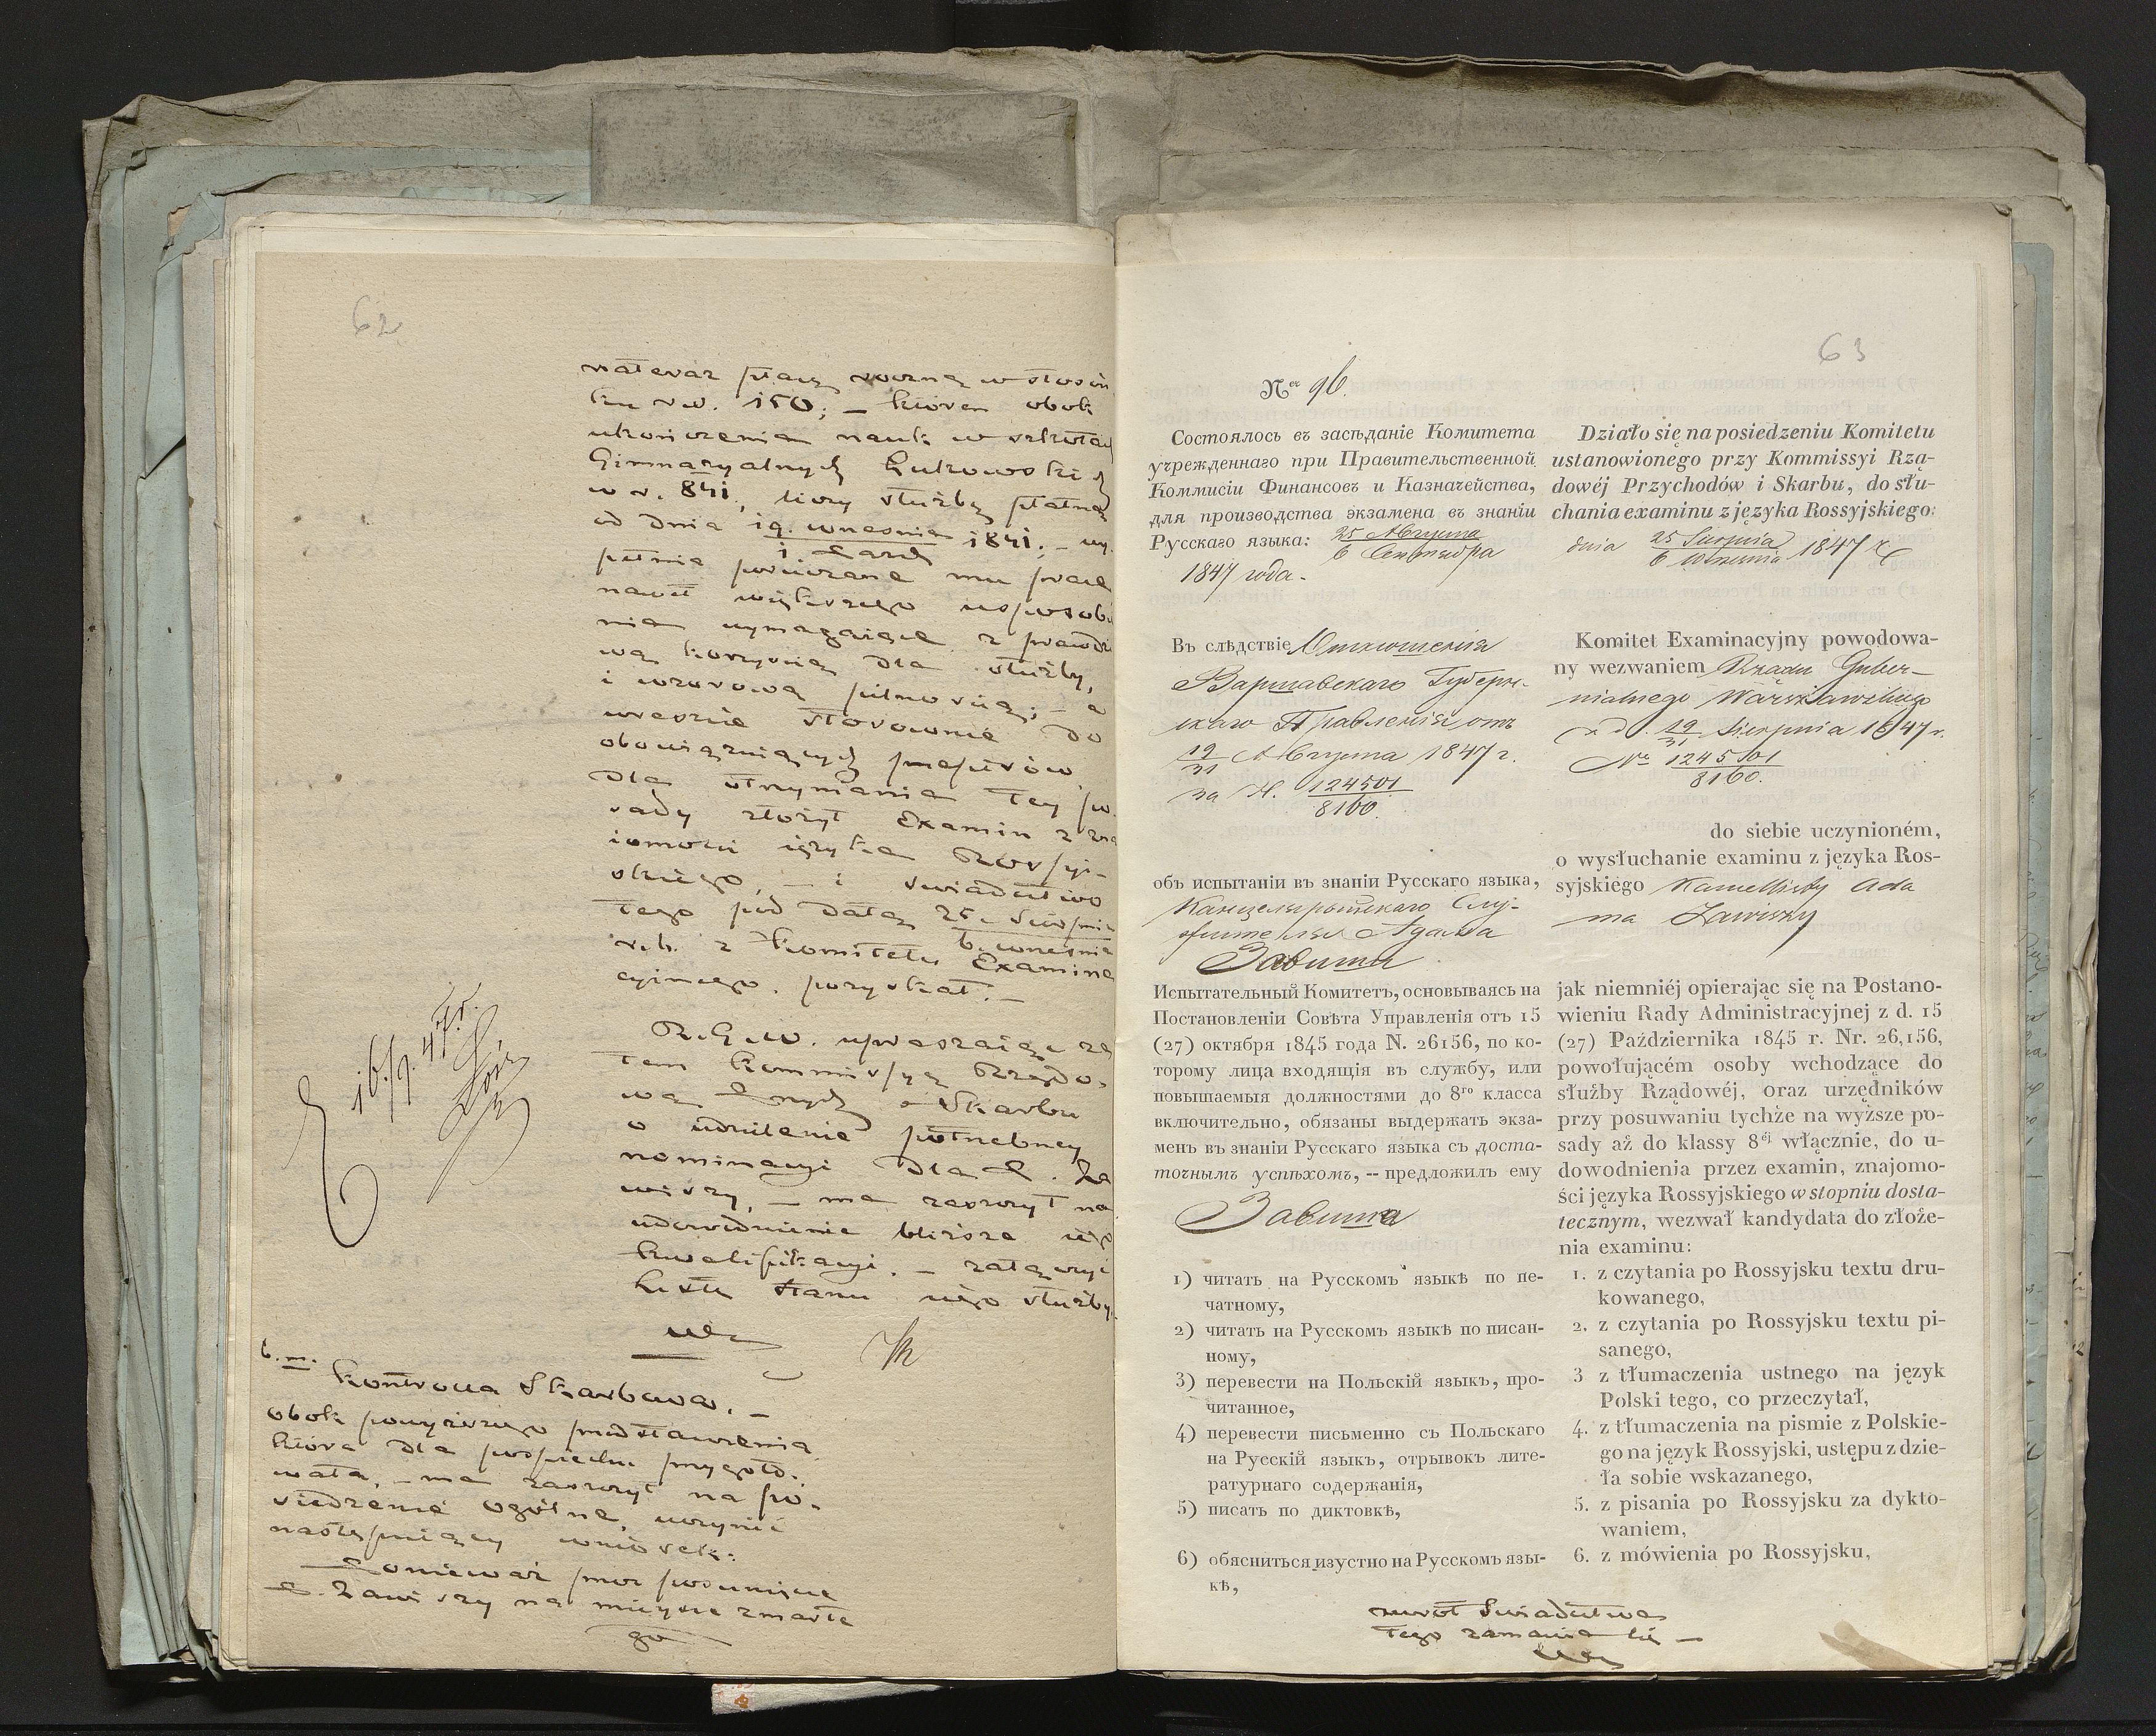 62
płacą roczną w stosun
ku r.s. 150; – który obok
ukończenia nauk w szkołach
Gimnazyalnych Łukowskich
w r. 841, liczy służbę płatną
od dnia 19. września 1841; – wy
pełnia poruczane mu prace
nawet większego usposobie
nia wymagaiące z prawdzi
wą korzyścią dla służby,
i wzorową pilnością; – a
wreszcie stosownie do
obowiązuiących przepisów,
dla otrzymania tey po
sady złożył Examin z zna
iomości ięzyka Rossyi-
skiego, – i świadectwo
tego pod datą 25. Sierpnia
6. września
r.b. z Komitetu Examina
cyinego pozyskał. –
R.G.W. upraszaiąc za
tem Kommissyą Rządo-
wą Przych. i Skarbu
o udzielenie potrzebney
nominacyi dla P. Za
wiszy, – ma zaszczyt na
udowodnienie bliższe iego
kwalifikacyi, – załączyć
listę stanu iego służby.
16/9. 47 r.
b. m.
Kontrolla Skarbowa. –
obok powyższego przedstawienia
które dla pospiechu przygoto-
wała, – ma zaszczyt na po-
siedzenie ogólne, uczynić
następuiący wniosek:
Ponieważ przez posunięcie
P. Zawiszy na mieysce zmarłe
go
63
Ner 96.
Состоялось въ засѣданіе Комитета
учрежденнаго при Правительственной
Коммисіи Финансовъ и Казначейства,
для производства экзамена въ знаніи
Русскаго языка: 25 Августа
6 Сентября
1847 года.
Въ слѣдствіе Отношенія
Варшавскаго Губерн-
скаго Правленія отъ
19/31 Августа 1847 г.
за N. 124501
8160.
объ испытаніи въ знаніи Русскаго языка,
Канцелярскаго Слу-
жителя Адама
Завиши
Испытательный Комитетъ, основываясь на
Постановленіи Совѣта Управленія отъ 15
(27) октября 1845 года N. 26156, по ко-
торому лица входящія въ службу, или
повышаемыя должностями до 8го класса
включительно, обязаны выдержать экза-
менъ въ знаніи Русскаго языка съ доста-
точнымъ успѣхомъ, -- предложилъ ему
Завиша
1) читать на Русскомъ языкѣ по пе-
чатному,
2) читать на Русскомъ языкѣ по писан-
ному,
3) перевести на Польскій языкъ, про-
читанное,
4) перевести письменно съ Польскаго
на Русскій языкъ, отрывокъ лите-
ратурнаго содержанія,
5) писать по диктовкѣ,
6) обясниться изустно на Русскомъ язы-
кѣ,
Działo się na posiedzeniu Komitetu
ustanowionego przy Kommissyi Rzą-
dowéj Przychodów i Skarbu, do słu-
chania examinu z języka Rossyjskiego:
dnia 25 Sierpnia
6 Września 1847 r.
Komitet Examinacyjny powodowa-
ny wezwaniem Rządu Guber-
nialnego Warszawskiego
z d. 19/31 Sierpnia 1847 r.
Nr 124501
8160.
do siebie uczynioném,
o wysłuchanie examinu z języka Ros-
syjskiego Kancellisty Ada
ma Zawiszy
jak niemniéj opierając się na Postano-
wieniu Rady Administracyjnej z d. 15
(27) Październikа 1845 r. Nr. 26,156,
powołującém osoby wchodzące do
służby Rządowéj, oraz urzędników
przy posuwaniu tychże na wyższe po-
sady aż do klassy 8éj włącznie, do u-
dowodnienia przez examin, znajomo-
ści języka Rossyjskiego w stopniu dosta-
tecznym, wezwał kandydata do złoże-
nia examinu:
1. z czytania po Rossyjsku textu dru-
kowanego,
2. z czytania po Rossyjsku textu pi-
sanego,
3 z tłumaczenia ustnego na język
Polski tego, co przeczytał,
4. z tłumaczenia na pismie z Polskie-
go na język Rossyjski, ustępu z dzie-
ła sobie wskazanego,
5. z pisania po Rossyjsku za dykto-
waniem,
6. z mówienia po Rossyjsku,
zwrot świadectwa
tego zamawia się –